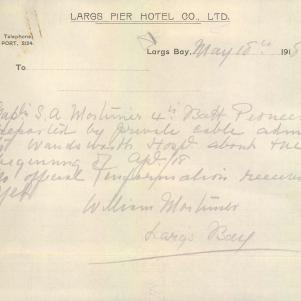 LARGS PIER HOTEL CO., LTD.
Telephone
PORT, 2124.
Largs Bay, May 18th 1918
To
Capt. S. A. Mortimer 4th Batt Pioneers
reported by private cable admitted
to Wandsworth Hosp about the
beginning of Apr 18
no official information received
yet
William Mortimer
Largs Bay